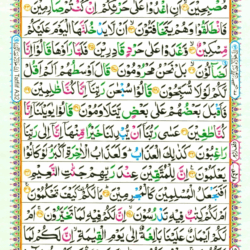 مُصْبِحِيْنَ ۙ اَنِ اغْدُوْا عَلٰى حَرْثِكُمْ اِنْ كُنْتُمْ صٰرِمِيْنَ
فَانْطَلَقُوْا وَهُمْ يَتَخَافَتُوْنَ ۙ اَنْ لَّا يَدْخُلَنَّهَا الْيَوْمَ عَلَيْكُمْ
مِّسْكِيْنٌ ۙ وَّغَدَوْا عَلٰى حَرْدٍ قٰدِرِيْنَ فَلَمَّا رَاَوْهَا قَالُوْٓا اِنَّا
لَضَآلُّوْنَ ۙ بَلْ نَحْنُ مَحْرُوْمُوْنَ قَالَ اَوْسَطُهُمْ اَلَمْ اَقُلْ
لَّكُمْ لَوْلَا تُسَبِّحُوْنَ قَالُوْا سُبْحٰنَ رَبِّنَآ اِنَّا كُنَّا ظٰلِمِيْنَ
فَاَقْبَلَ بَعْضُهُمْ عَلٰى بَعْضٍ يَّتَلَاوَمُوْنَ قَالُوْا يٰوَيْلَنَآ اِنَّا
كُنَّا طٰغِيْنَ عَسٰى رَبُّنَآ اَنْ يُّبْدِلَنَا خَيْرًا مِّنْهَآ اِنَّآ اِلٰى رَبِّنَا
رٰغِبُوْنَ كَذٰلِكَ الْعَذَابُ وَلَعَذَابُ الْاٰخِرَةِ اَكْبَرُ لَوْ كَانُوْا
يَعْلَمُوْنَ اِنَّ لِلْمُتَّقِيْنَ عِنْدَ رَبِّهِمْ جَنّٰتِ النَّعِيْمِ
اَفَنَجْعَلُ الْمُسْلِمِيْنَ كَالْمُجْرِمِيْنَ مَا لَكُمْ كَيْفَ تَحْكُمُوْنَ
اَمْ لَكُمْ كِتٰبٌ فِيْهِ تَدْرُسُوْنَ اِنَّ لَكُمْ فِيْهِ لَمَا تَخَيَّرُوْنَ اَمْ
لَكُمْ اَيْمَانٌ عَلَيْنَا بَالِغَةٌ اِلٰى يَوْمِ الْقِيٰمَةِ اِنَّ لَكُمْ لَمَا